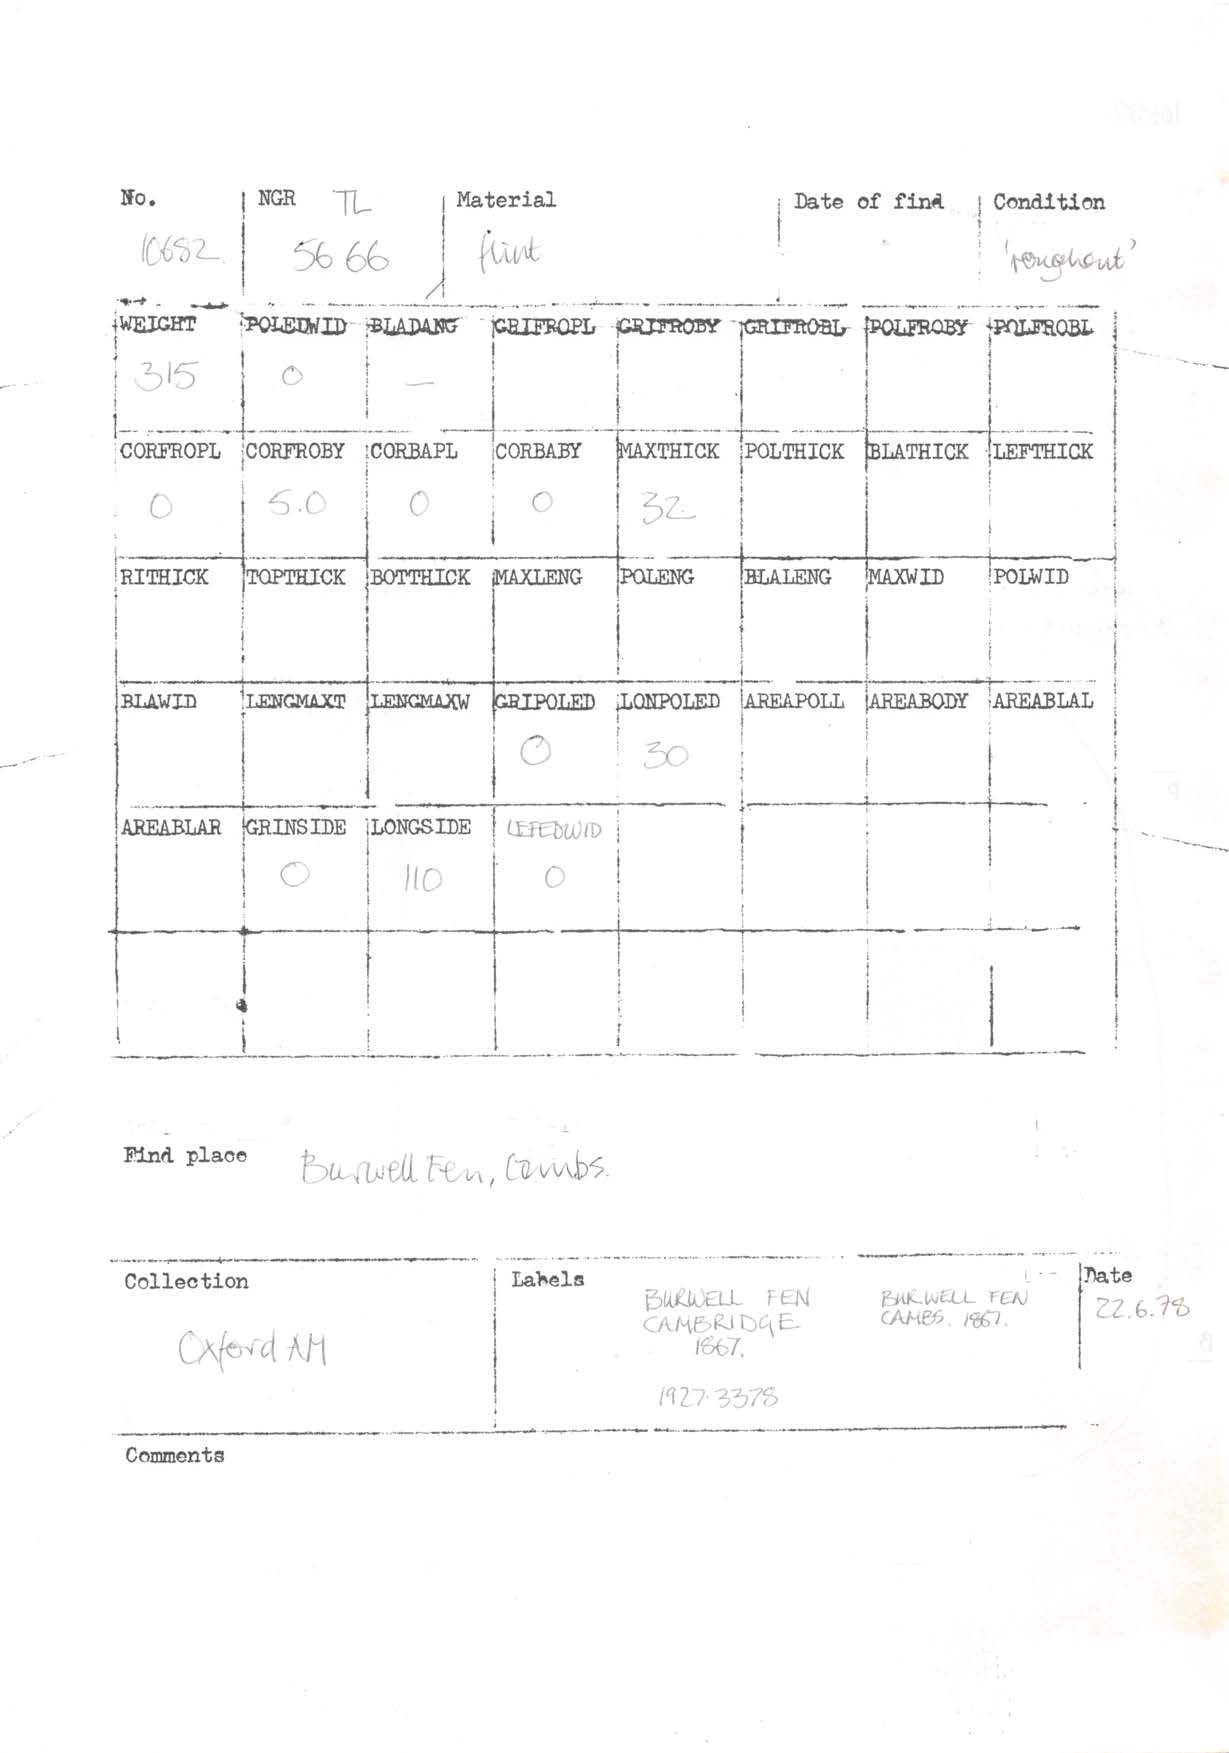 No. NGR TL Material Date of find Condition
10682 56 66 flint 'roughout'
WEIGHT POLEDWID BLADANG GRIFROPL GRIFROBY GRIFROBL POLFROBY POLFROBL
315 0 —
CORFROPL CORFROBY CORBAPL CORBABY MAXTHICK POLTHICK BLATHICK LEFTHICK
0 5.0 0 0 32
RITHICK TOPTHICK BOTTHICK MAXLENG POLENG BLALENG MAXWID POLWID
BLAWID LENGMAXT LENGMAXW GRIPOLED LONPOLED AREAPOLL AREABODY AREABLAL
0 30
AREABLAR GRINSIDE LONGSIDE LEFEDWID
0 110 0
Find place Burwell Fen, Cambs.
Collection Labels Date
BURWELL FEN BURWELL FEN 22.6.78
CAMBRIDGE CAMBS. 1867.
Oxford AM 1867.
1927.3378
Comments